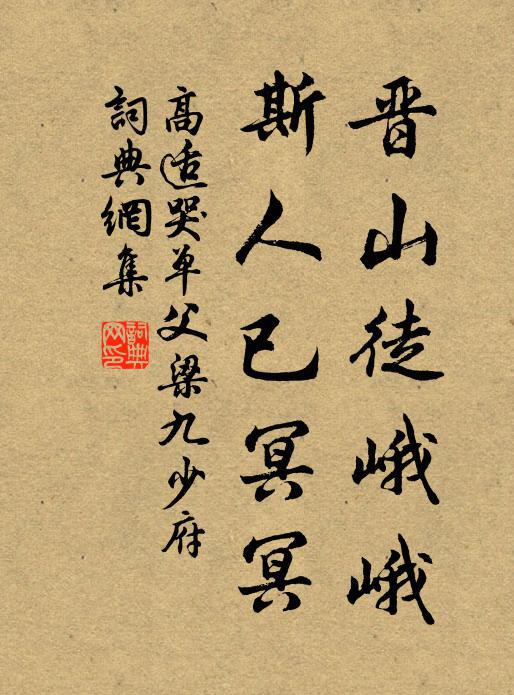 晋山徒峨峨
斯人已冥冥
高适哭单父梁九少府
詞典網集
詞典网印